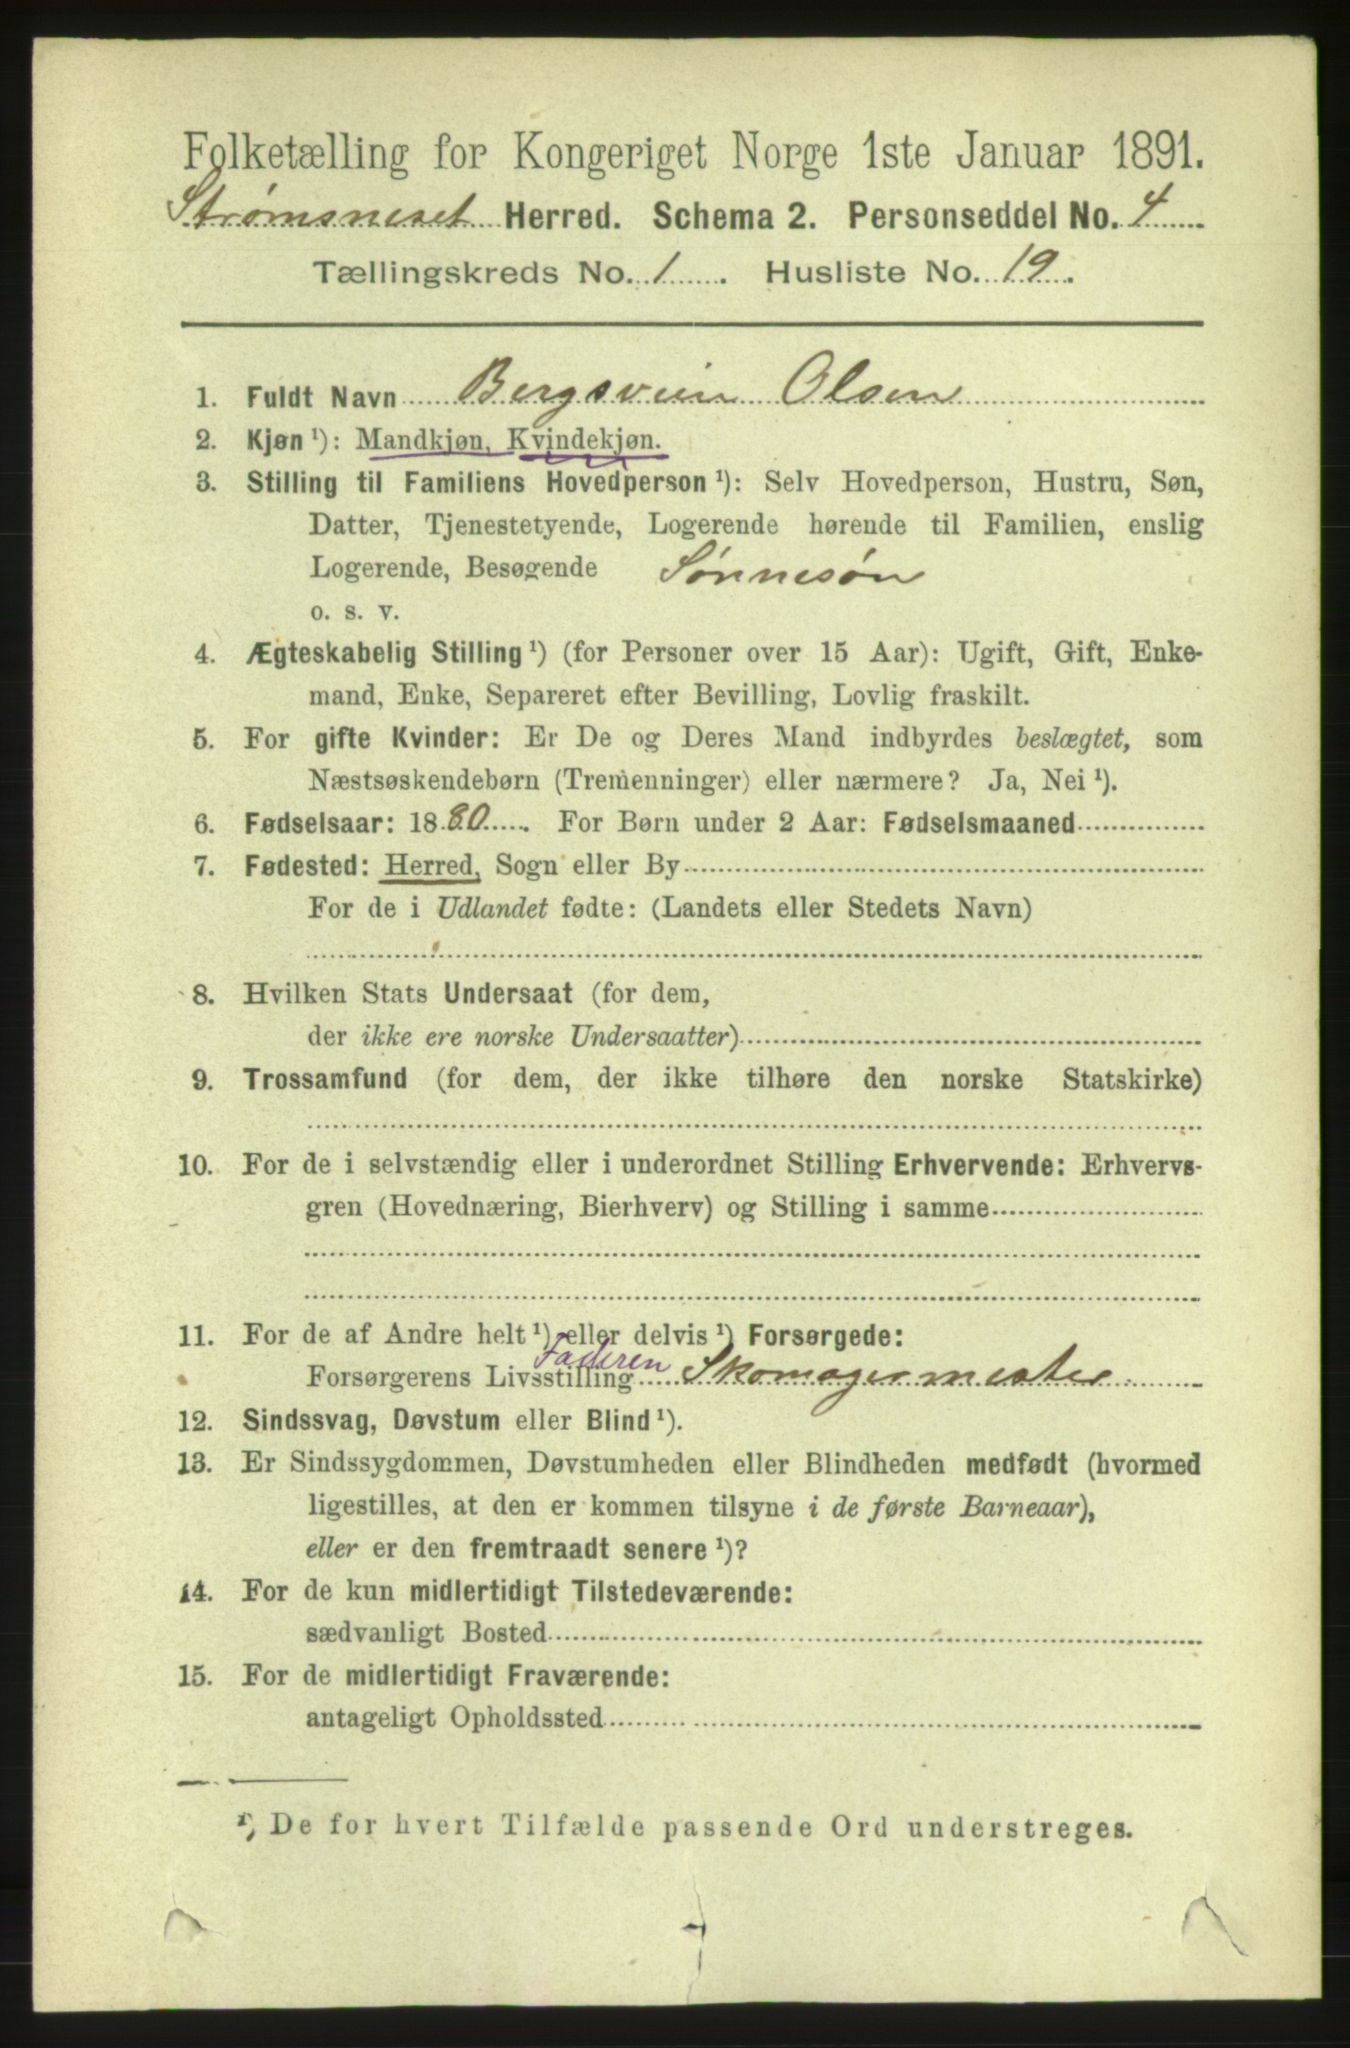 Folketælling for Kongeriget Norge 1ste Januar 1891.
Strømsneset Herred. Schema 2. Personseddel No. 4
Tællingskreds No. 1. Husliste No. 19.
1. Fuldt Navn Bergsvein Olsen
2. Kjøn ¹): Mandkjøn, Kvindekjøn.
3. Stilling til Familiens Hovedperson ¹): Selv Hovedperson, Hustru, Søn,
Datter, Tjenestetyende, Logerende hørende til Familien, enslig
Logerende, Besøgende Sønnesøn
o. s. v.
4. Ægteskabelig Stilling ¹) (for Personer over 15 Aar): Ugift, Gift, Enke-
mand, Enke, Separeret efter Bevilling, Lovlig fraskilt.
5. For gifte Kvinder: Er De og Deres Mand indbyrdes beslægtet, som
Næstsøskendebørn (Tremenninger) eller nærmere? Ja, Nei ¹).
6. Fødselsaar: 1880. For Børn under 2 Aar: Fødselsmaaned
7. Fødested: Herred, Sogn eller By
For de i Udlandet fødte: (Landets eller Stedets Navn)
8. Hvilken Stats Undersaat (for dem,
der ikke ere norske Undersaatter)
9. Trossamfund (for dem, der ikke tilhøre den norske Statskirke)
10. For de i selvstændig eller i underordnet Stilling Erhvervende: Erhvervs-
gren (Hovednæring, Bierhverv) og Stilling i samme
11. For de af Andre helt ¹) eller delvis ¹) Forsørgede:
Faderen
Forsørgerens Livsstilling Skomagermester
12. Sindssvag, Døvstum eller Blind ¹).
13. Er Sindssygdommen, Døvstumheden eller Blindheden medfødt (hvormed
ligestilles, at den er kommen tilsyne i de første Barneaar),
eller er den fremtraadt senere ¹)?
14. For de kun midlertidigt Tilstedeværende:
sædvanligt Bosted
15. For de midlertidigt Fraværende:
antageligt Opholdssted
¹) De for hvert Tilfælde passende Ord understreges.